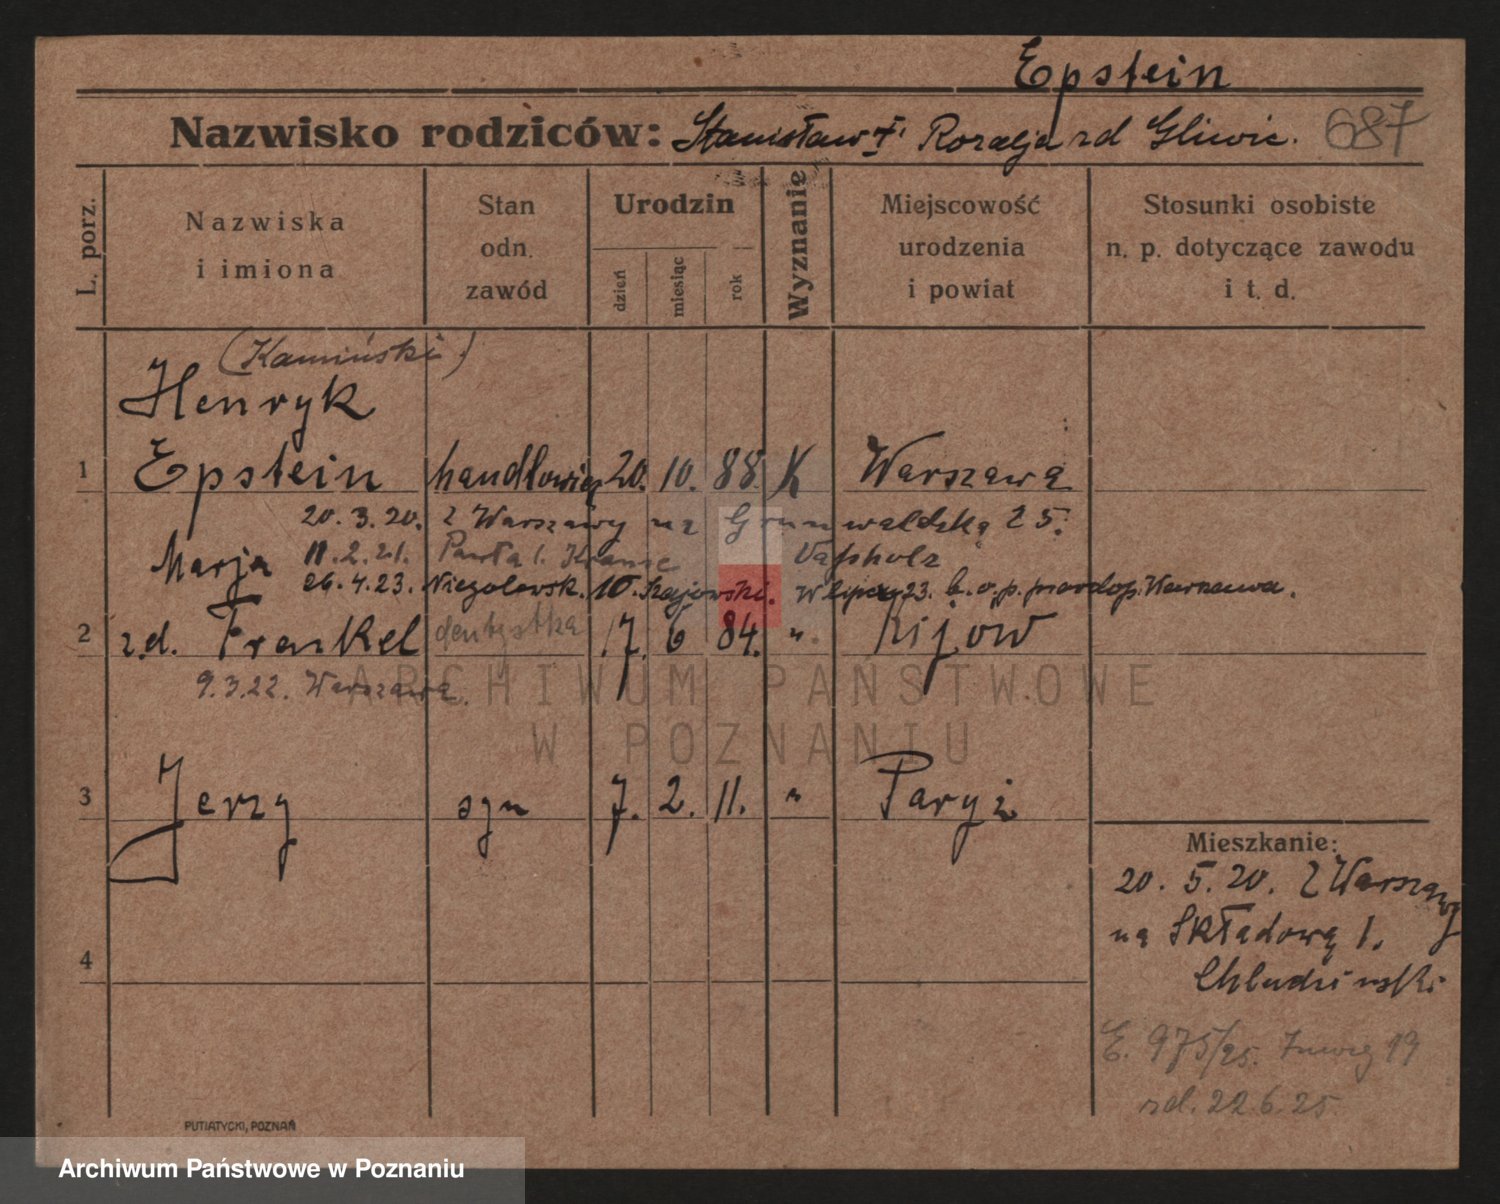 Epstein
Nazwisko rodziców: Stanisław Rozalja zd Gliwic. 687
L. porz.
Nazwiska i imiona
Stan odn. zawód
Urodzin
dzień
miesiąc
rok
Wyznanie
Miejscowość urodzenia i powiat
Stosunki osobiste n. p. dotyczące zawodu i t. d.
(Kamiński)
Henryk
1 Epstein handlowiec 20. 10. 88. K Warszawa
20. 3. 20. z Warszawy na Grunwaldzką 25.
Marja 11. 2. 21. Pawła 1. Wapholz
26. 4. 23. Niegolewsk. 10. w lipcu 23. b. o. p. prawdop. Warszawa.
2 z.d. Frenkel dentystka 17. 6 84. ". Kijow
9. 3. 22. Warszawa.
ARCHIWUM PAŃSTWOWE
W POZNANIU
3 Jerzy syn 7. 2. 11. " Paryż
Mieszkanie:
20. 5. 20. z Warszawy
na Składową 1.
Chludziński
4
E. 975/25. 19
zd. 22.6.25
PUTIATYCKI, POZNAŃ
Archiwum Państwowe w Poznaniu